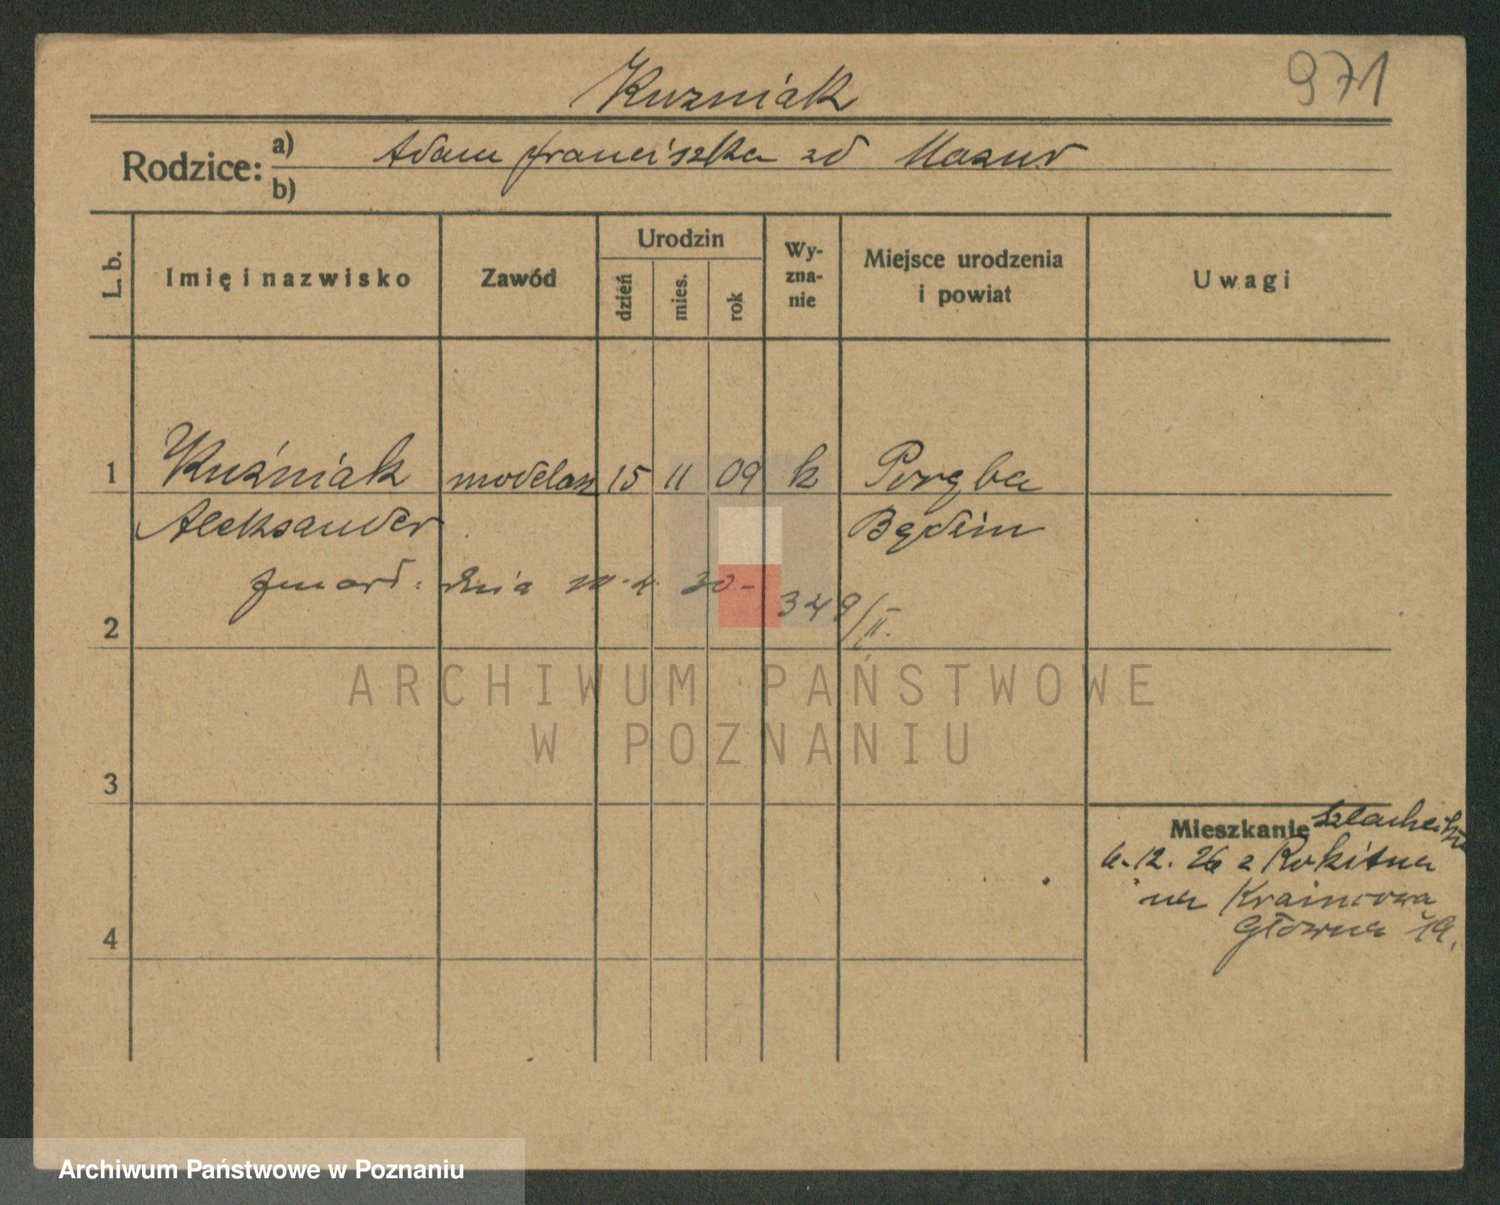 Kuzniak
971
Rodzice: a) Adam Franciszka zd Mazur
b)
L. b.
Imię i nazwisko
Zawód
Urodzin
dzień
mies.
rok
Wy-
zna-
nie
Miejsce urodzenia
i powiat
Uwagi
1 Kuźniak modelarz 15 11 09 k Poręba
Aleksander Będzin
zmarł: dnia 30 - 349/II.
2
ARCHIWUM PAŃSTWOWE
W POZNANIU
3
Mieszkanie
12. 26 z Rokitna
na Krańcowa
Główna 19.
4
Archiwum Państwowe w Poznaniu